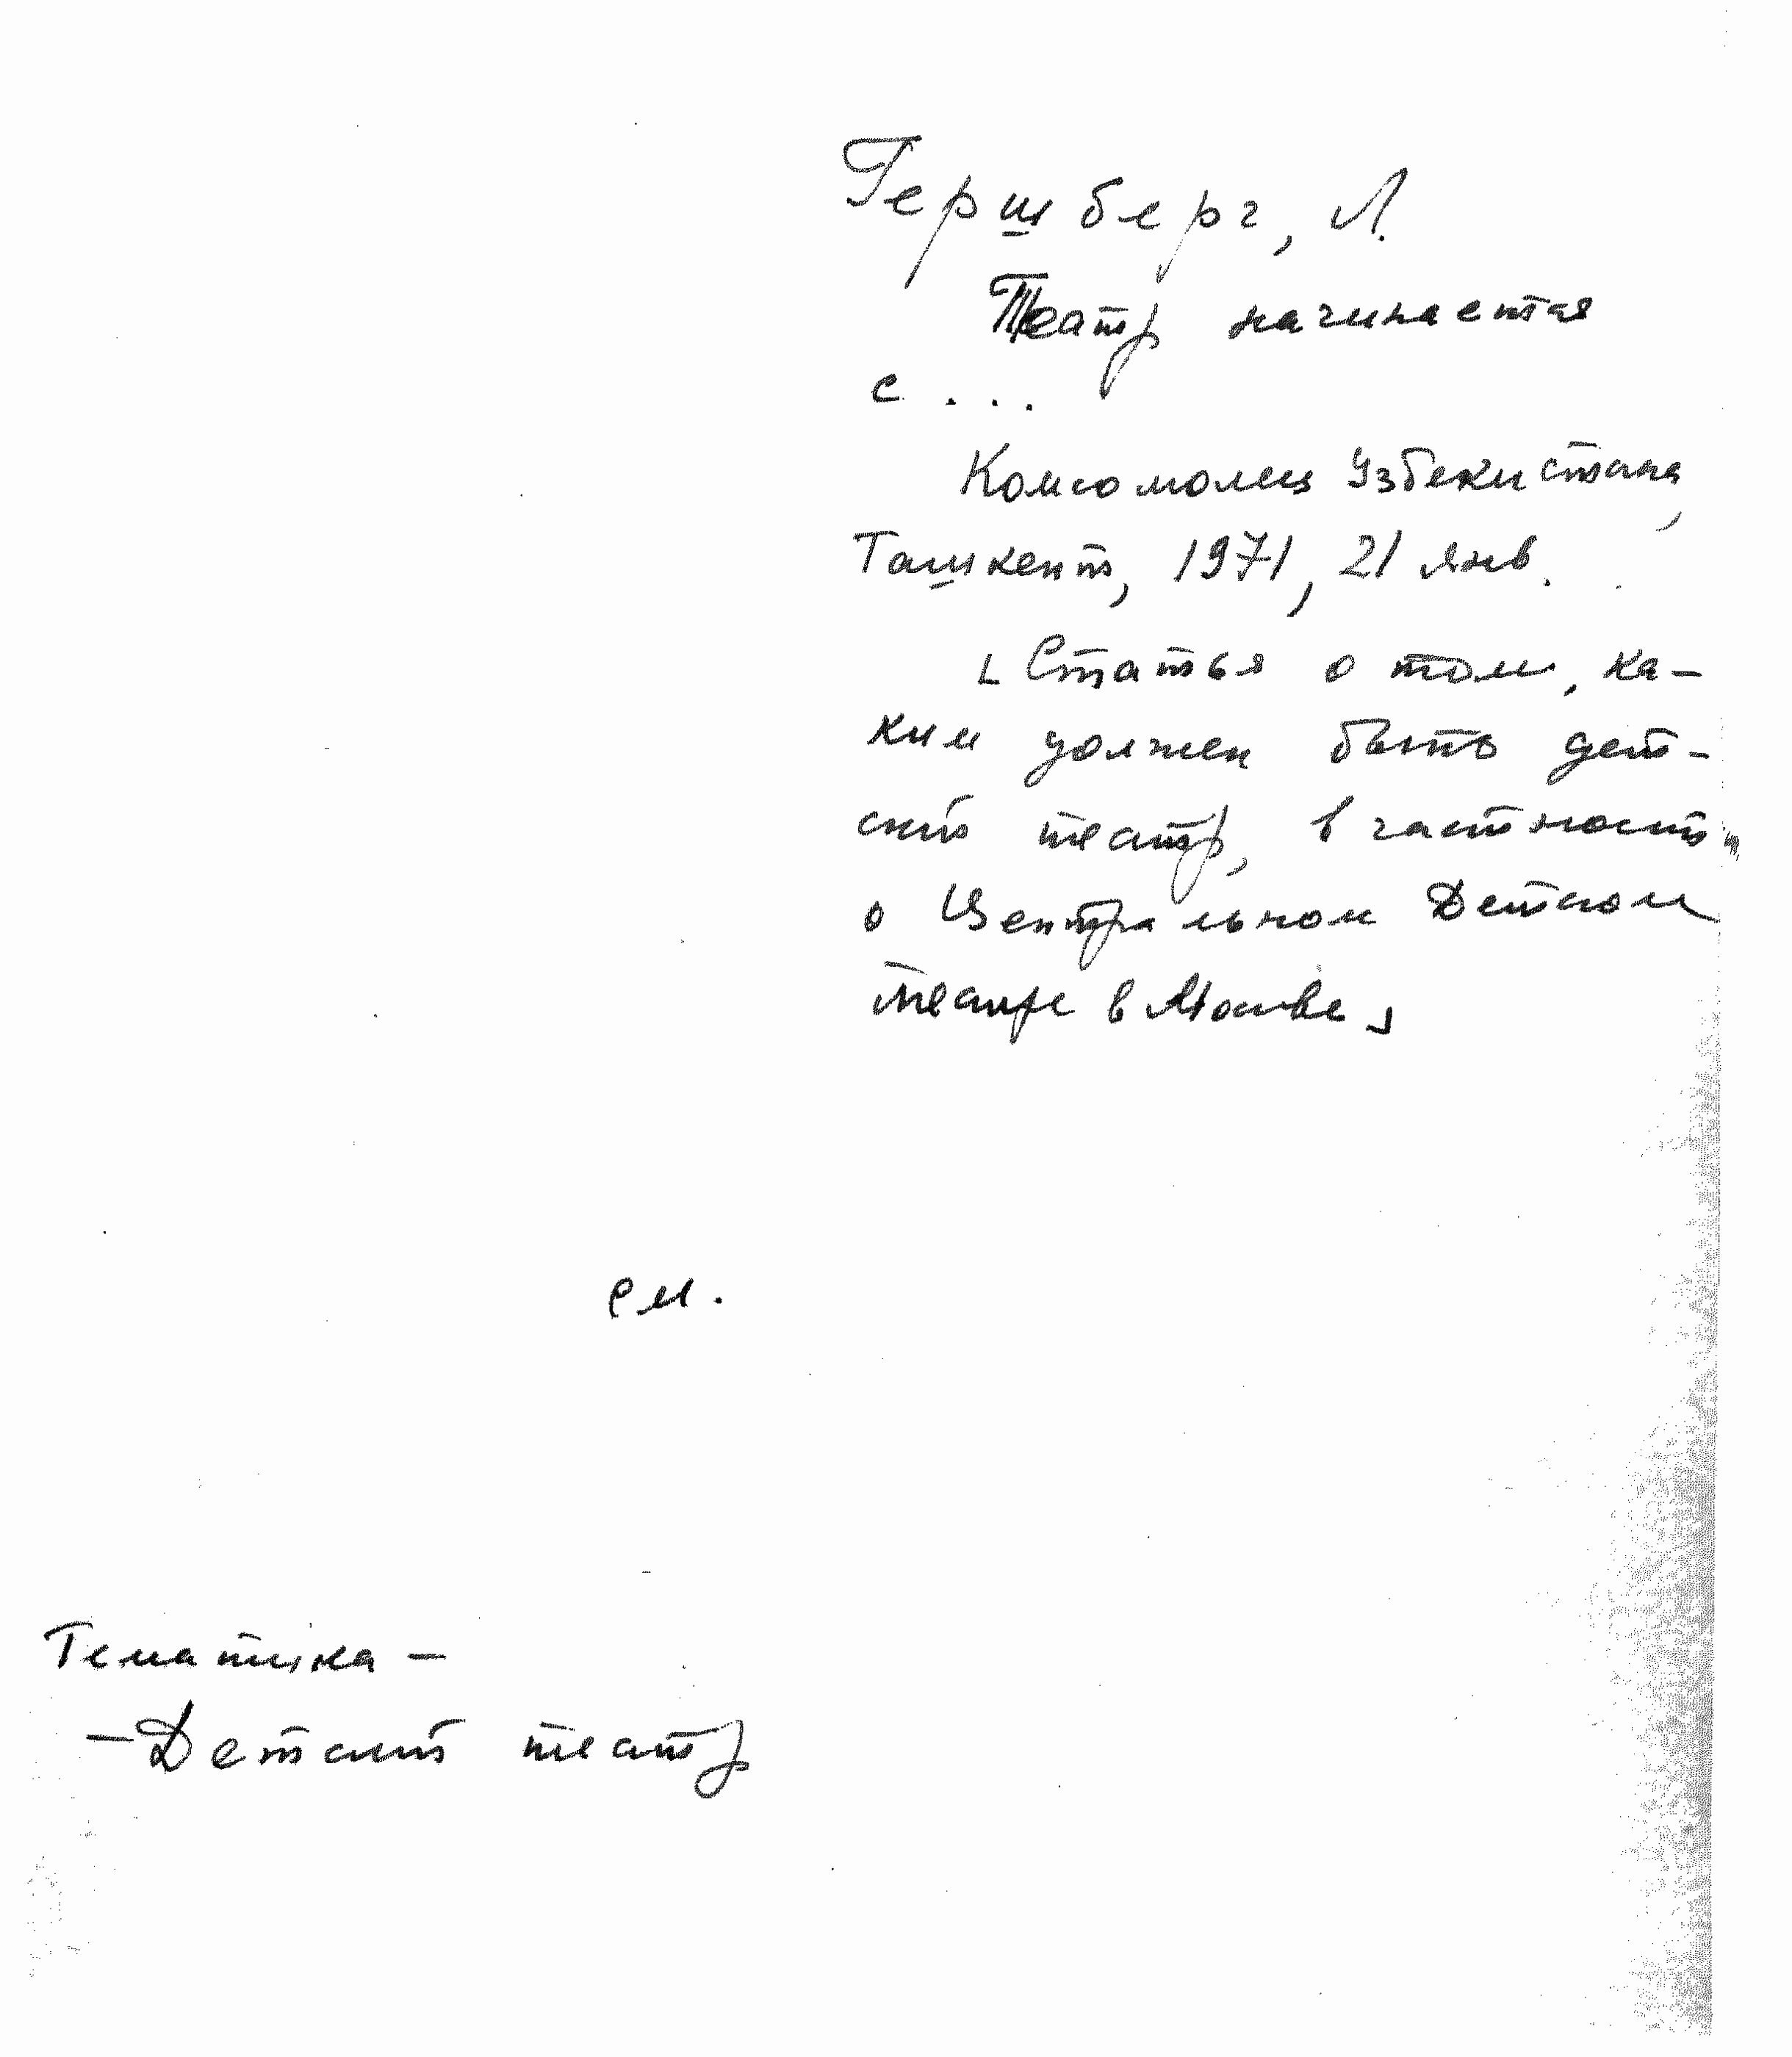 Гершберг, Л.
Театр начинается
с ...
Комсомолец Узбекистана,
Ташкент, 1971, 21 янв.
[Статья о том, ка-
ким должен быть дет-
ский театр, в частности
о Центральном Детском
театре в Москве]
см.
Тематика –
– Детский театр